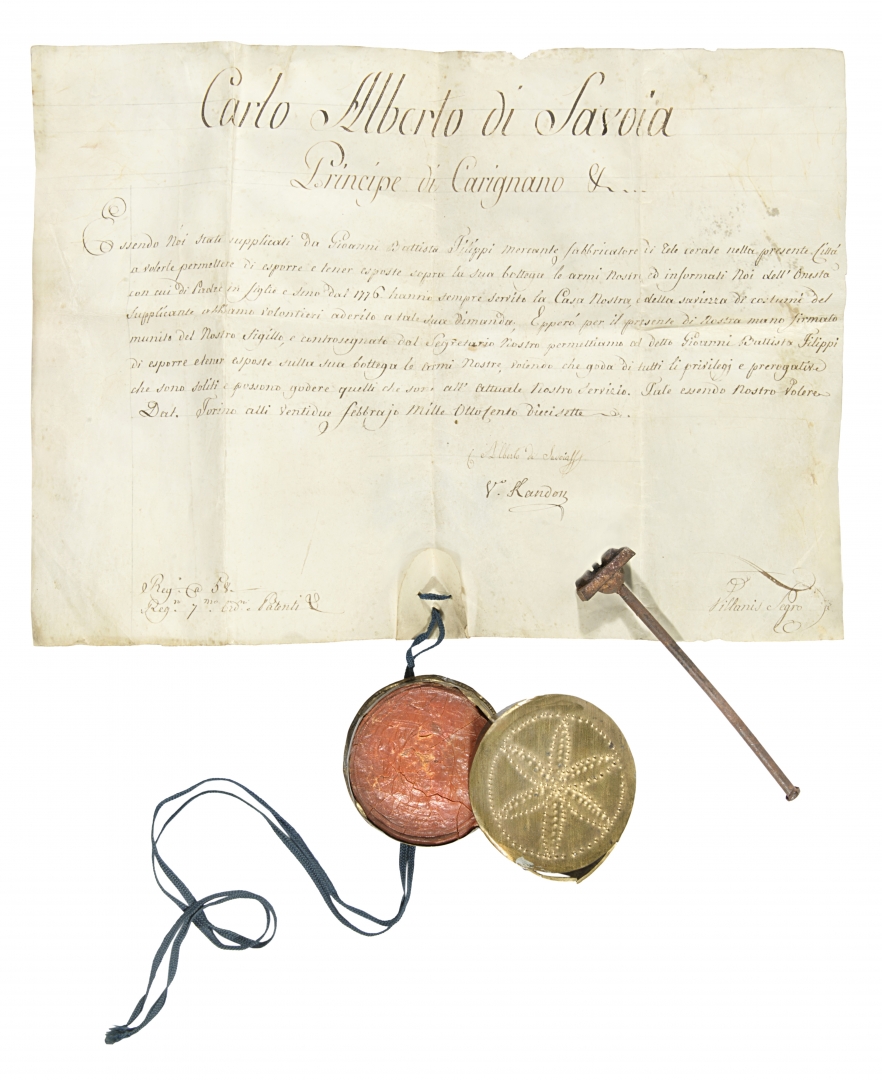 Carlo Alberto di Savoia
Principe di Carignano &...
Essendo Noi stati supplicati da Giovanni Battista Filippi mercante fabbricatore di Tele cerate nella presente Città
a volerle permettere di esporre e tener esposte sopra la sua bottega le armi Nostre ed informati Noi dell' Onestà
con cui di Padre in figlio e sino dal 1776 hanno sempre servito la Casa Nostra, e della saviezza di costumi del
Supplicante abbiamo volontieri aderito a tale sua dimanda; Epperò per il presente di Nostra mano firmato
munito del Nostro Sigillo, e controsegnato dal Segretario Nostro permettiamo al detto Giovanni Battista Filippi
di esporre e tener esposte sulla sua bottega le armi Nostre, volendo che goda di tutti li privilegj e prerogative
che sono soliti e possono godere quelli che sono all' attuale Nostro Servizio. Tale essendo Nostro Volere
Dat. Torino alli ventidue febbrajo Mille Ottocento Diecisette
Alberto de Savoia
V.
Reg.
Reg. 7 Patenti